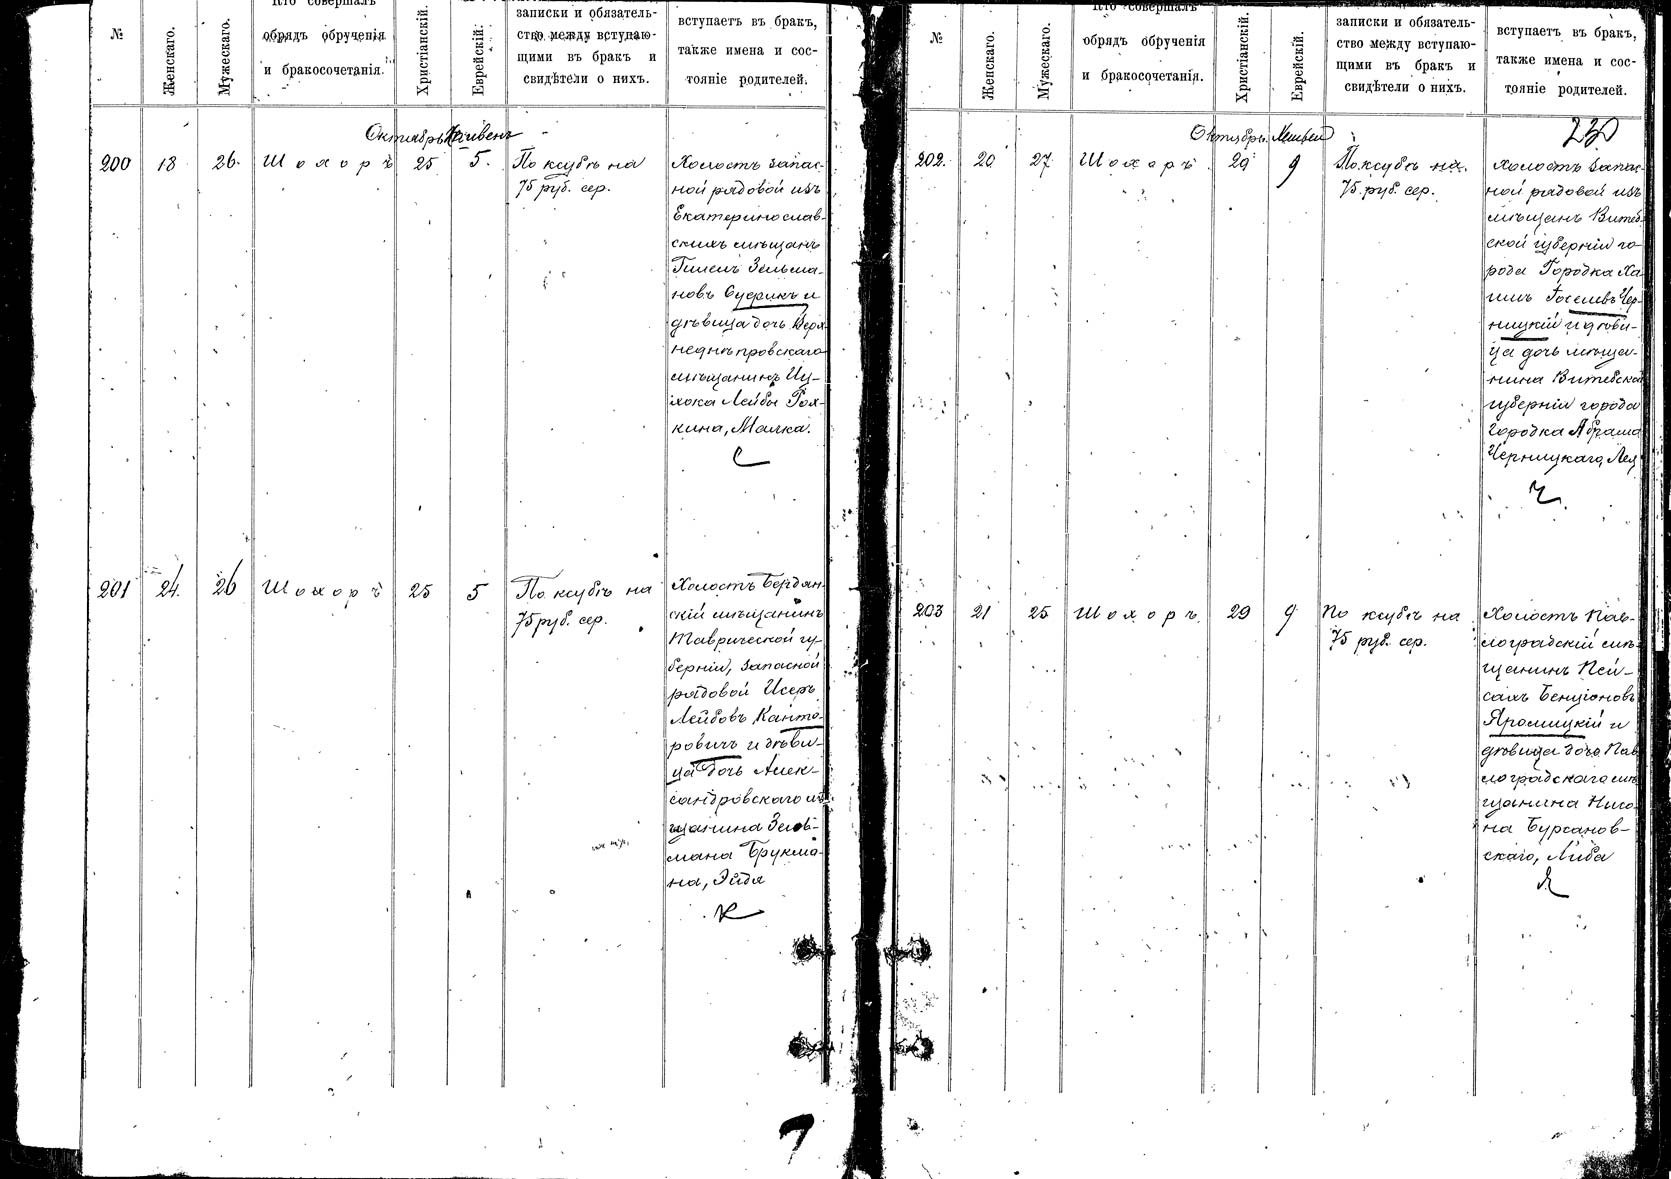 №
Женскаго.
Мужескаго.
Кто совершалъ
обрядъ обрученія
и бракосочетанія.
Христіанскій.
Еврейскій.
записки и обязатель-
ство между вступаю-
щими въ бракъ и
свидѣтели о нихъ.
вступаетъ въ бракъ,
также имена и сос-
тояніе родителей.
Октябрь
200 18 26. Шохоръ 25 5. По ксубѣ на
75 руб. сер.
Холостъ запас-
ной рядовой изъ
Екатеринослав-
скихъ мѣщанъ
Гилель Зельма-
новъ и
дѣвица дочь Верх-
неднѣпровскаго
мѣщанинъ Иц-
хока Лейбы Рох-
кина, Малка.
С
201 24. 26 Шохоръ 25 5 По ксубѣ на
75 руб. сер.
Холостъ Бердян-
скій мѣщанинъ
Таврической гу-
берніи, запасной
рядовой Исеръ
Лейбовъ Канто-
ровичъ и дѣви-
ца дочь Алек-
сандровскаго мѣ-
щанина Зель-
мана Брукма-
на, Эйдя
К
7
№
Женскаго.
Мужескаго.
Кто совершалъ
обрядъ обрученія
и бракосочетанія.
Христіанскій.
Еврейскій.
записки и обязатель-
ство между вступаю-
щими въ бракъ и
свидѣтели о нихъ.
вступаетъ въ бракъ,
также имена и сос-
тояніе родителей.
230
Октябрь
202. 20 27. Шохоръ 29 9 По ксубѣ на
75 руб. сер.
Холостъ запас-
ной рядовой изъ
мѣщанъ Витеб-
ской губерніи го-
рода Городка Ха-
имъ Іоселевъ Чер-
ницкій и дѣви-
ца дочь мѣща-
нина Витебской
губерніи города
Городка Абрама
Черницкаго, Лея
Ч
203 21 25 Шохоръ 29 9 По ксубѣ на
75 руб. сер.
Холостъ Пав-
лоградскій мѣ-
щанинъ Пей-
сахъ Бенціоновъ
и
дѣвица дочь Пав-
лоградскаго мѣ-
щанина Нисо-
на Бурсанов-
скаго, Либа
Я